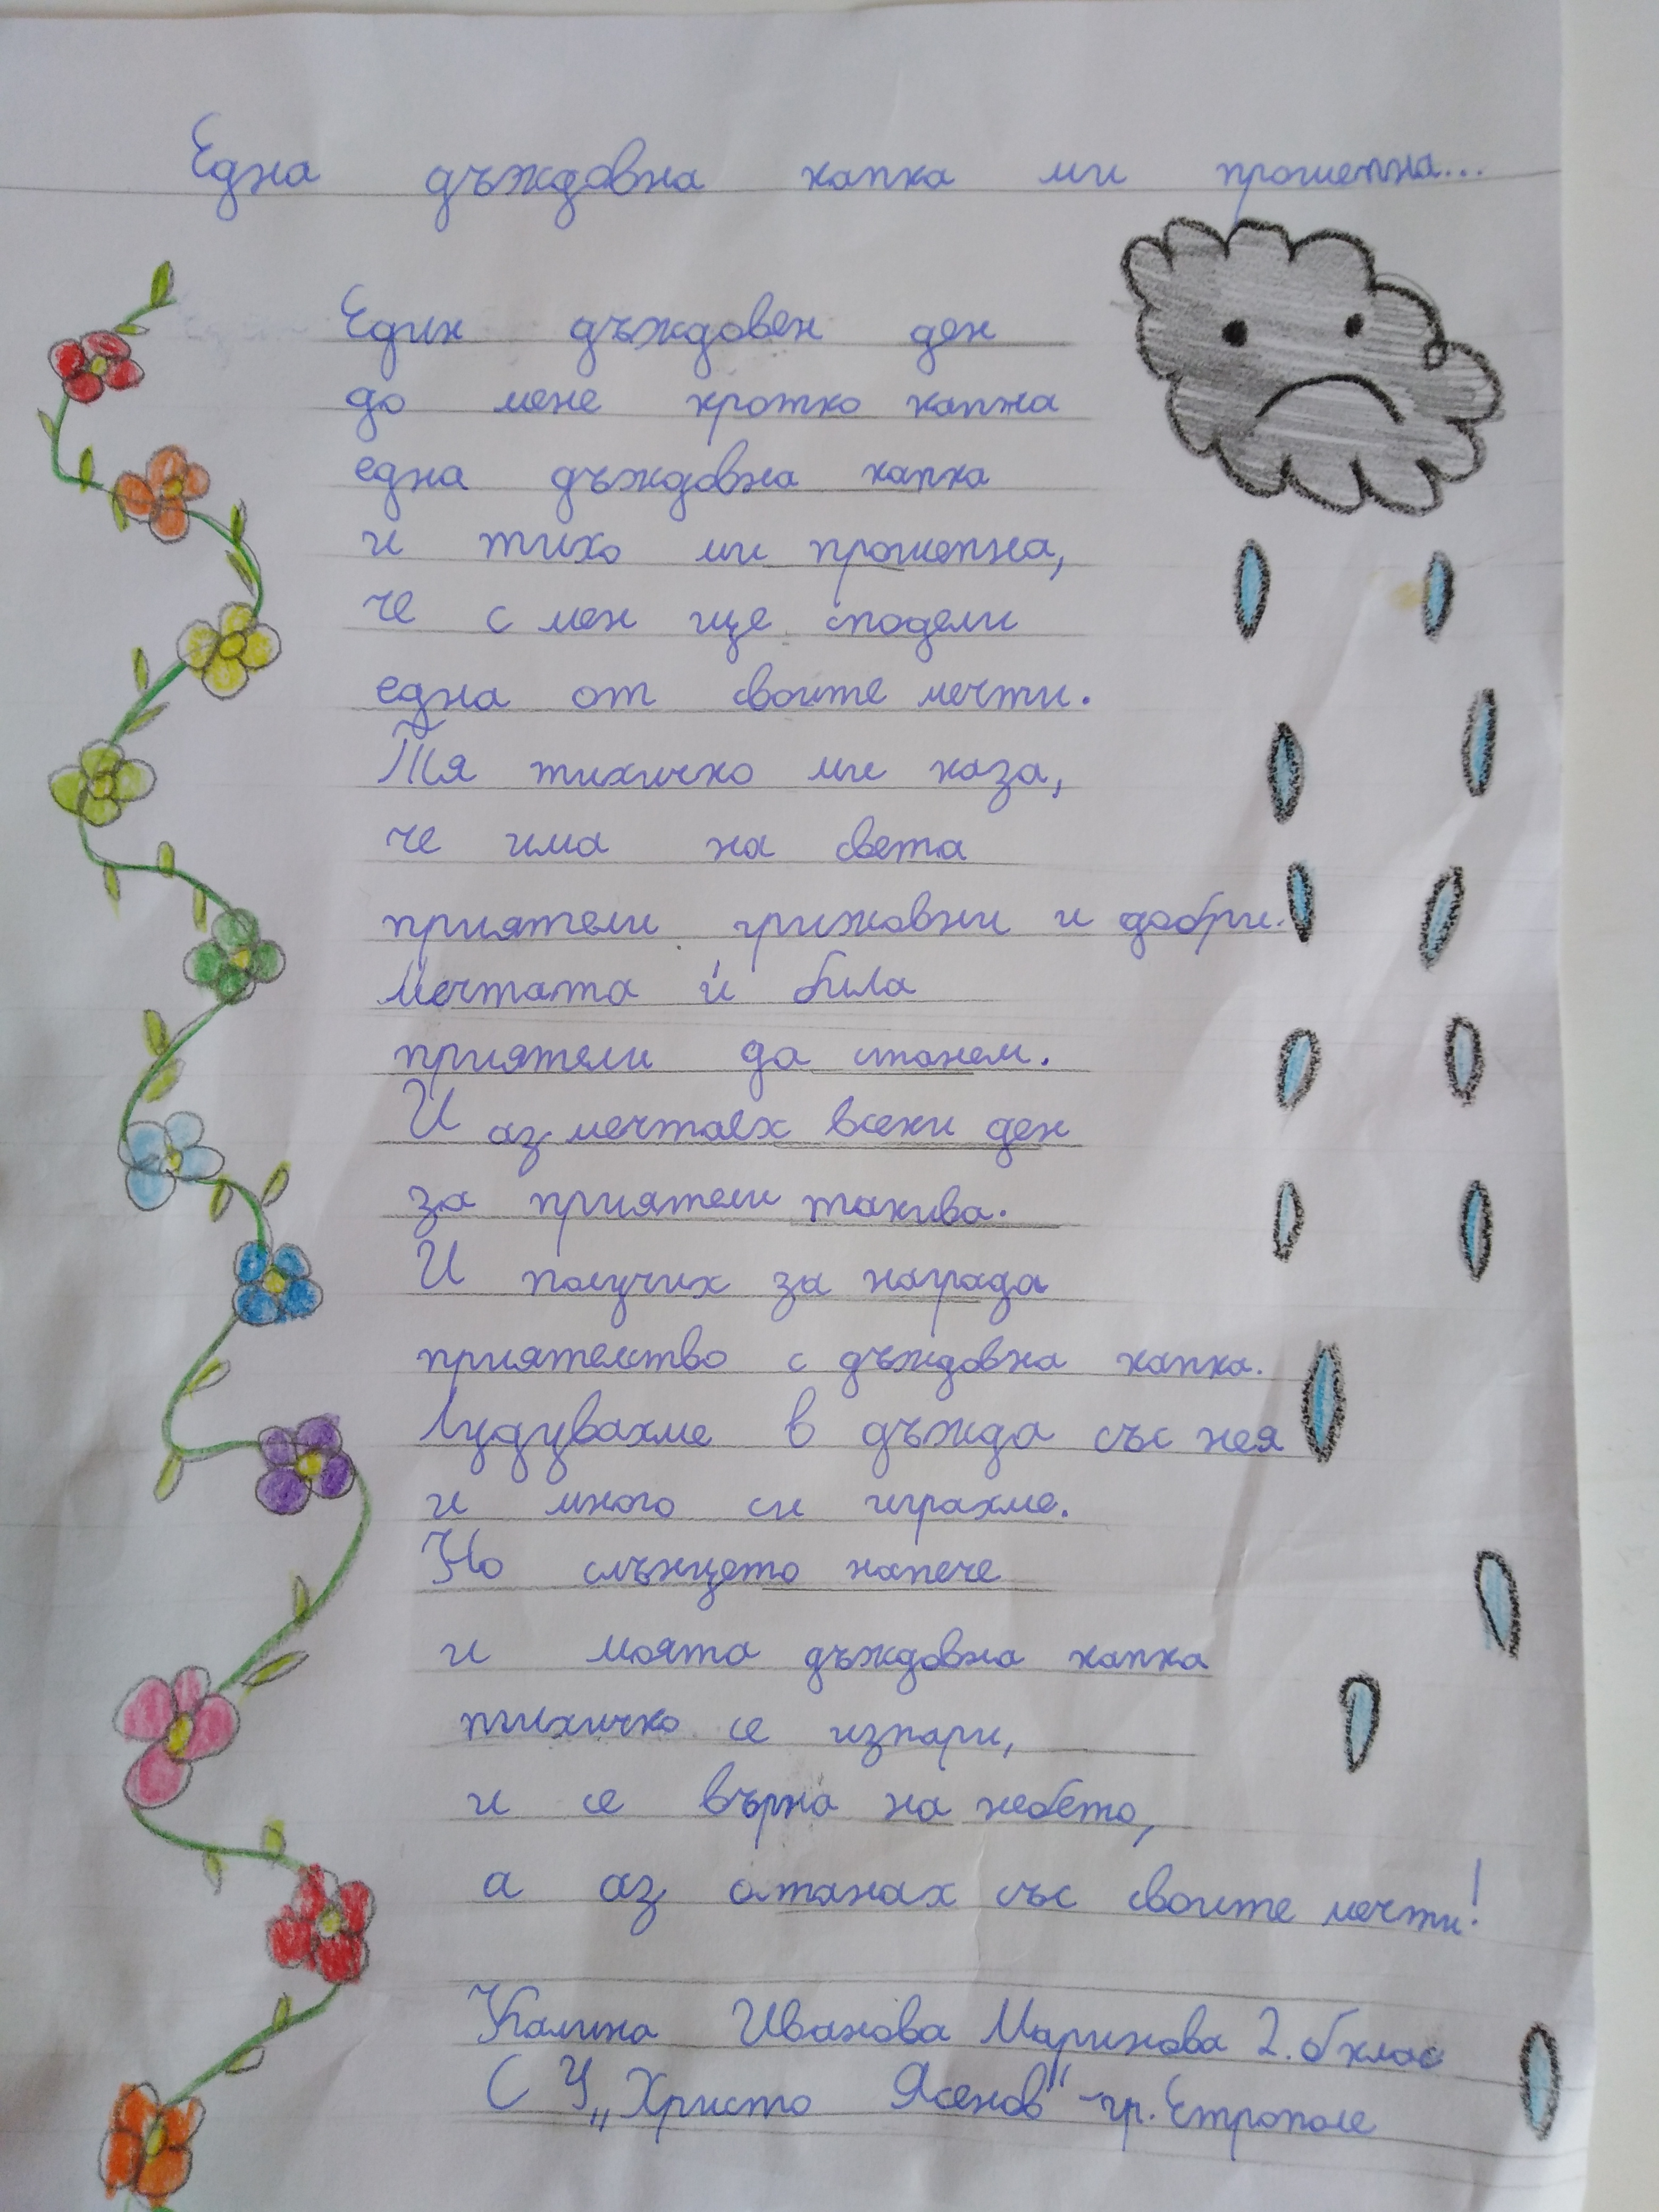 Една дъждовна капка ми прошепна...
Един дъждовен ден
до мене кротко капна
една дъждовна капка
и тихо ми прошепна,
че с мен ще сподели
една от своите мечти.
Тя тихичко ми каза,
че има на света
приятели грижовни и добри.
Мечтата ѝ била
приятели да станем.
И аз мечтаех всеки ден
за приятели такива.
И получих за награда
приятелство с дъждовна капка.
Лудувахме в дъжда със нея
и много си играхме.
Но слънцето напече
и моята дъждовна капка
тихичко се изпари,
и се върна на небето,
а аз останах със своите мечти!
Калина Иванова Маринова 2. б клас
СУ „Христо Ясенов" - гр. Етрополе